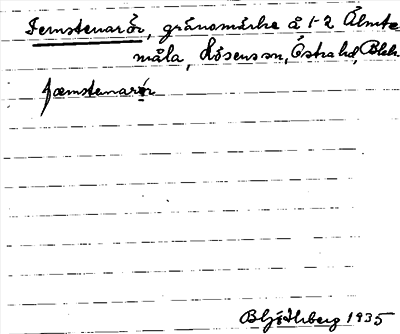 Femstenarör, gränsmärke å 1-2 Älmte
måla, Lösens sn, Östra hd, Blek
fæmstenarör
Blj. Ahrberg 1935